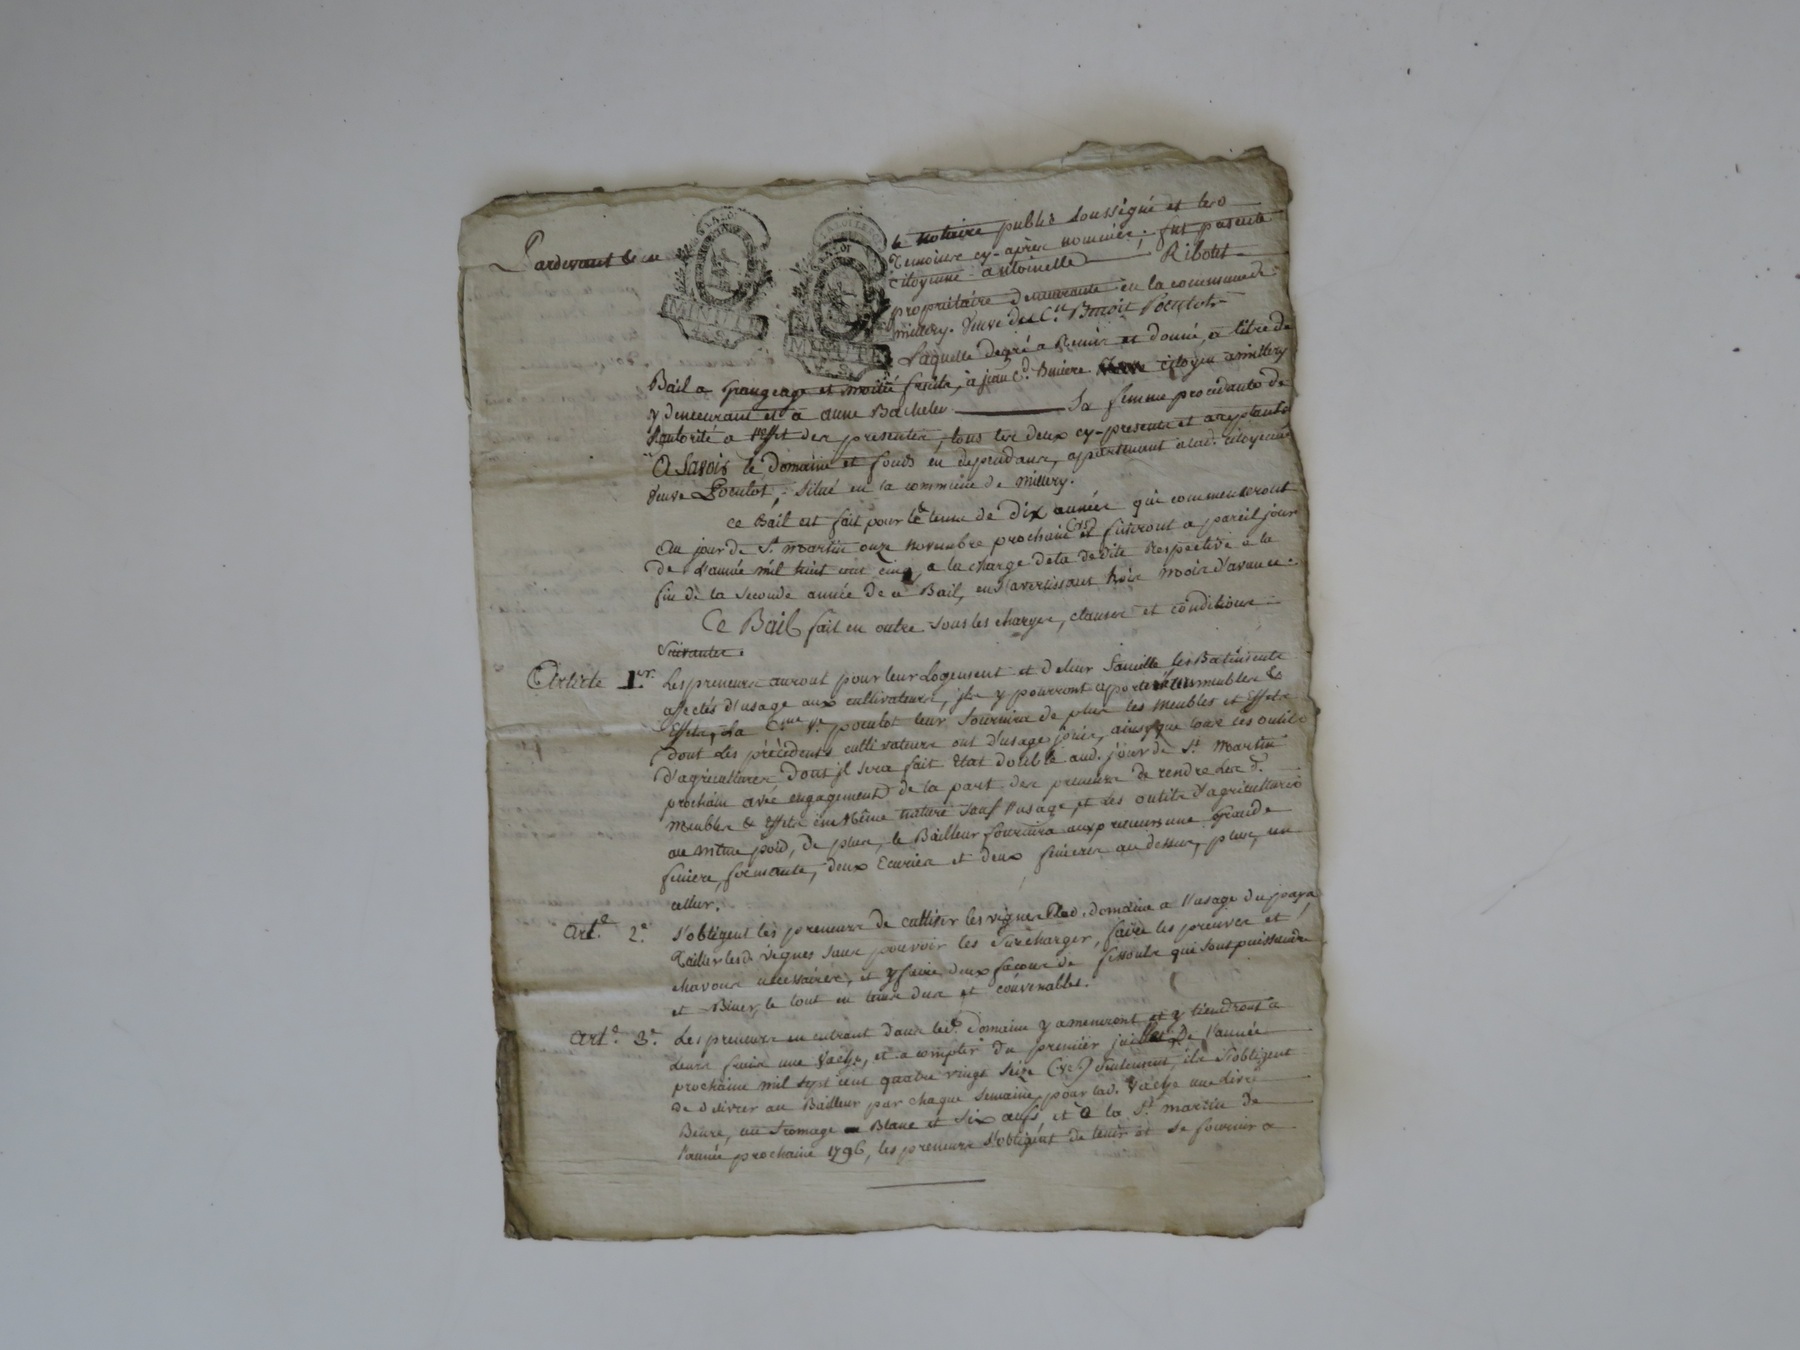 Pardevant le notaire public Soussigné et les
Temoins cy-après nommés. fut presente
Citoyenne antoinette Ribolet
propriétaire demeurante en la commune de
millery. veuve de C.en Benoit Poculot
Laquelle degré a Remis et donné, a titre de
MINUTE
MINUTE
Bail a grangeage et moitié fruits, à jean C.d Bruiere citoyen a millery
y demeurant et à anne Bachelu sa femme procédante de
Sautorité a l'effet des presentes, tous les deux cy-presents et acceptants
A Savoir le domaine et fonds en dependance, apartenant a lad. citoyenne
veuve Poculot, Situé en la commune de millery.
Ce Bail est fait pour le terme de Dix années qui commenceront
Au jour de S.t martin onze novembre prochain (vs) et finiront a pareil jour
de l'année mil huit cent cinq, a la charge de la dedite Respective a la
fin de la seconde année de ce Bail, en s'avertissant trois mois d'avance.
Ce Bail fait en outre sous les charges, clauses et conditions
Suivantes.
Article 1.er Les preneurs auront pour leur logement et de leur famille les Batiments
affectés d'usage aux cultivateurs, jls y pourront apporter leurs meubles &
Effets, La C.nne v.e poculot leur fournira de plus les meubles et Effets
dont les précédents cultivateurs ont d'usage jouir, ainsy que tous les outils
d'agricultures dont jl sera fait Etat double aud. jour de S.t Martin
prochain avec engagement de la part des preneurs de rendre les d.
Meubles & Effets en Même nature sauf l'usage, et les outils d'agricultures
au même poid, De plus, le Bailleur fournira aux preneurs une grande
feniere, fermante, deux Ecuries et deux fenieres au dessus, plus, un
cellier.
Art.e 2.e S'obligent les preneurs de cultiver les vignes dud. domaine a l'usage du pays
Tailler lesd. vignes sans pouvoir les Surcharger, faire les preuves et
chavons necessaires, et y faire deux façons de fessoule qui sont puissandre
et Biner, le tout en tems dus et convenables.
Art.e 3.e Les preneurs en entrant dans led. Domaine y ameneront et y tiendront a
leurs frais une Vache, et a compter du premier juillet De l'année
prochaine mil sept cent quatre vingt seize (vs) seulement, ils s'obligent
de delivrer au Bailleur par chaque semaine, pour lad. vache une livre
Beure, un fromage Blanc et six œufs, et à la S.t martin de
l'année prochaine 1796, les preneurs s'obligent de tenir et se fournir a